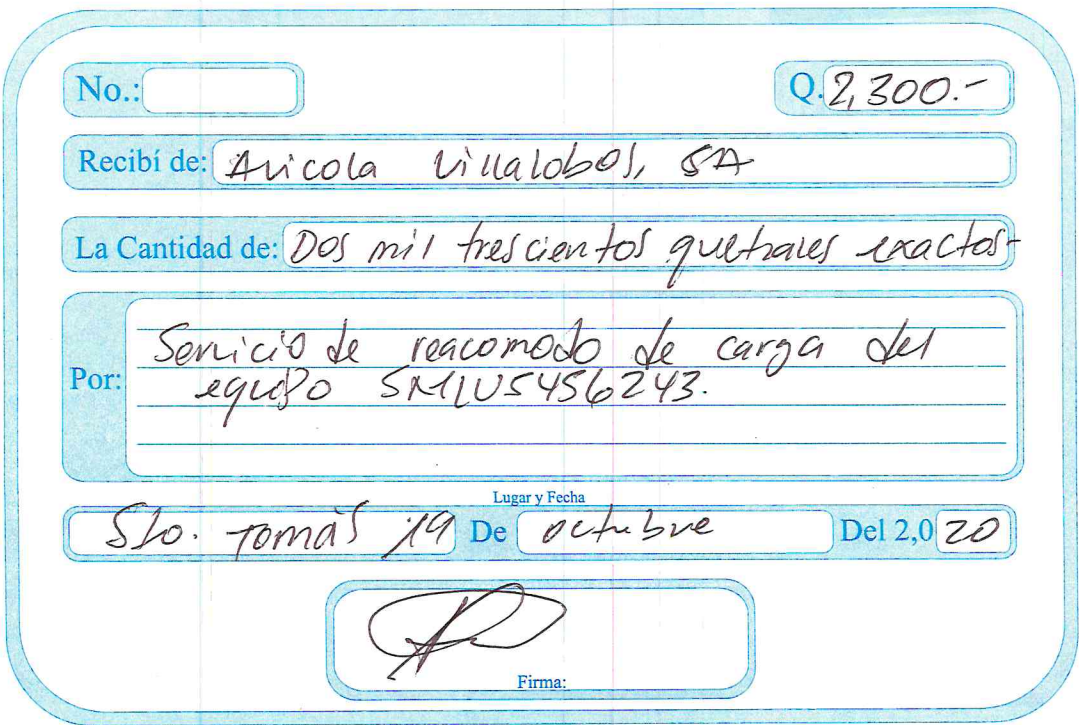 No.: Q. 2,300.-
Recibí de: Avicola Villalobos, SA
La Cantidad de: Dos mil trescientos quetzales exactos-
Servicio de reacomodo de carga del
Por: equipo SMLU5456243.
Lugar y Fecha
Sto. Tomás 19 De octubre Del 2,0 20
Firma: